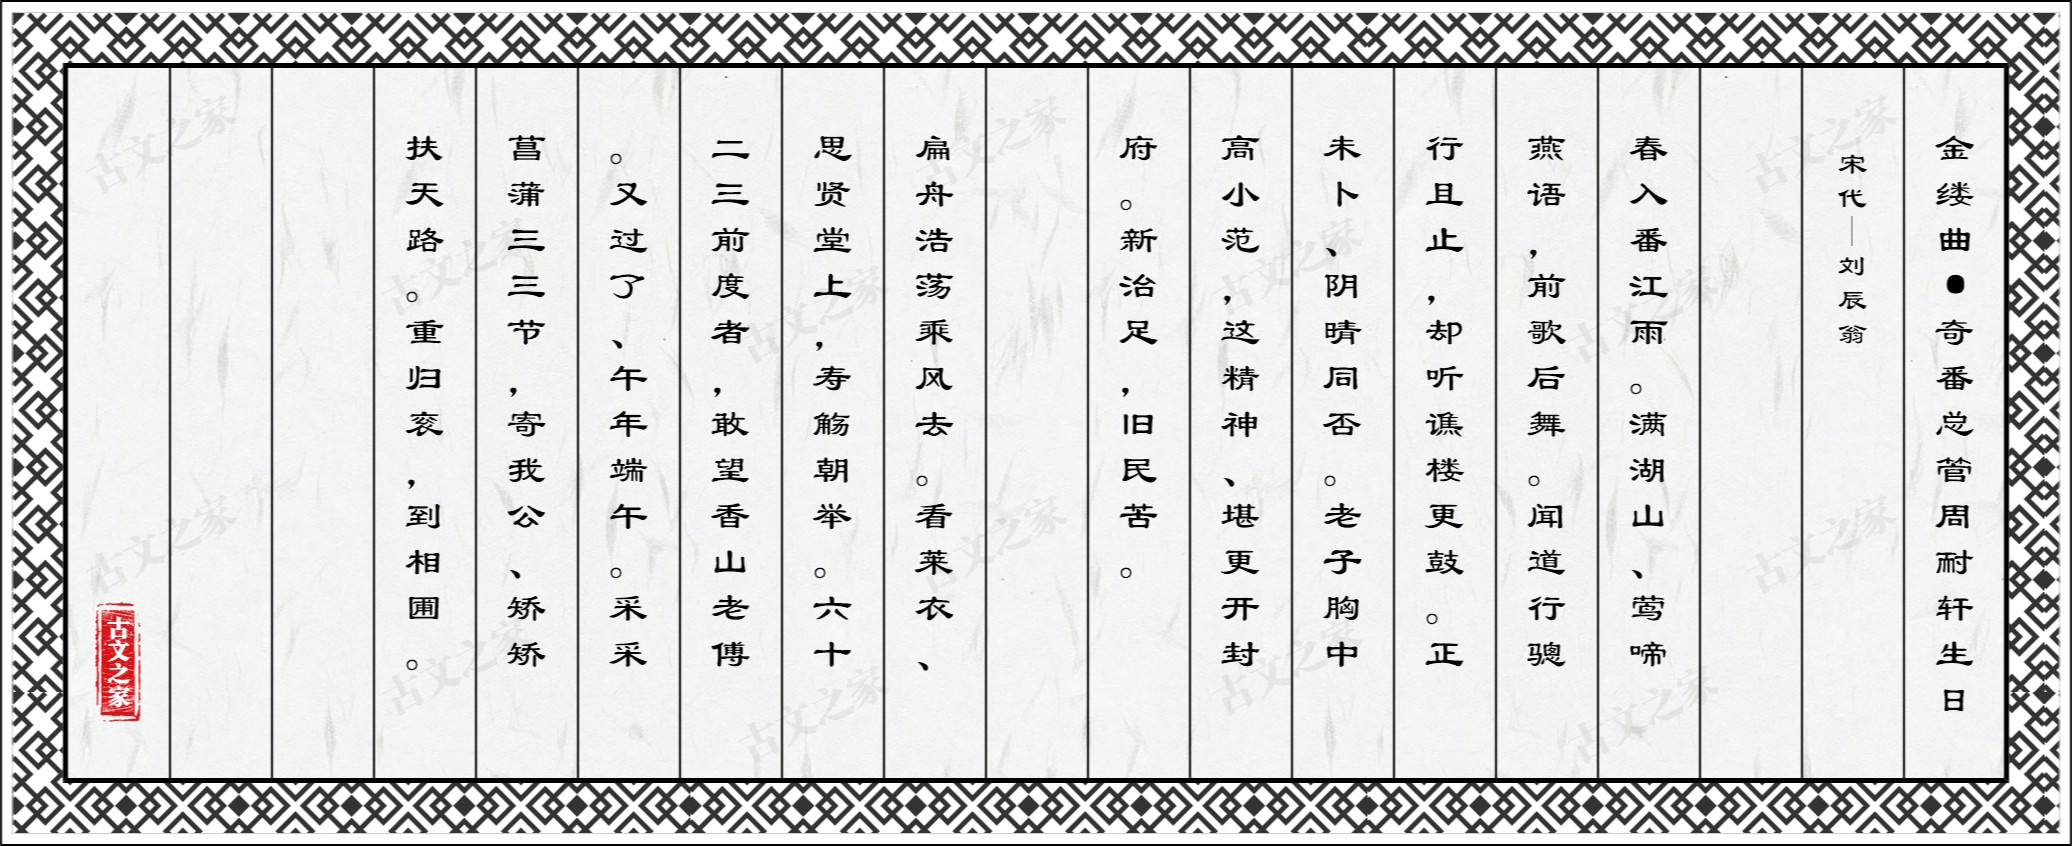 金缕曲•奇番总管周耐轩生日
宋代—刘辰翁
春入番江雨。满湖山、莺啼
燕语，前歌后舞。闻道行骢
行且止，却听谯楼更鼓。正
未卜、阴晴同否。老子胸中
高小范，这精神、堪更开封
府。新治足，旧民苦。
扁舟浩荡乘风去。看莱衣、
思贤堂上，寿觞朝举。六十
二三前度者，敢望香山老傅
。又过了、午年端午。采采
菖蒲三三节，寄我公、矫矫
扶天路。重归衮，到相圃。
古文之家